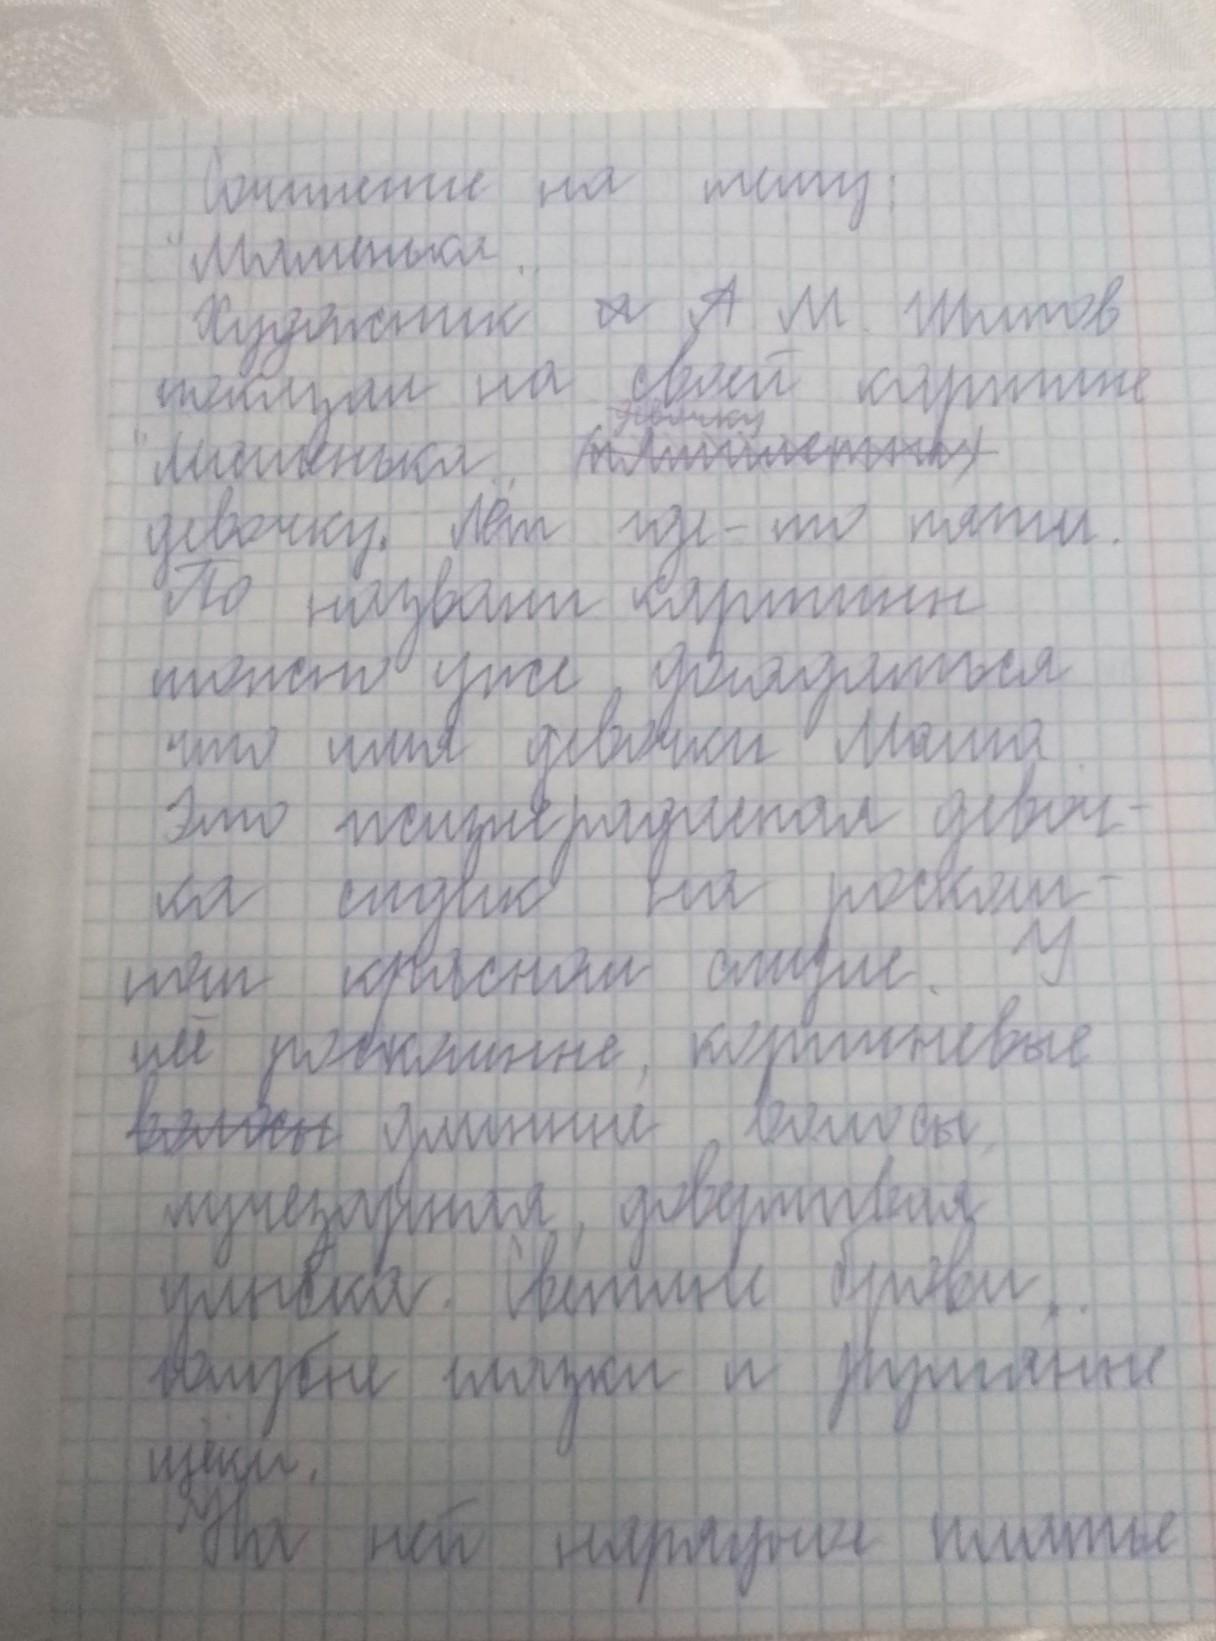 Сочинение на тему:
"Машенька"
Художник А М. Шилов
показал на своей картине
"Машенька" девочку
девочку. Лет где-то пяти.
По названи картини
можно уже догадаться
что имя девочки Маша
Это жизнерадисная девоч-
ка сидит на роскош-
ном красном стуле. У
неё роскошные, коричневые
волосы длинные волосы,
лучезарная, доверчивая
улыбка. Светлые брови,
голубые глазки и румяные
щёки.
На ней нарядное платье